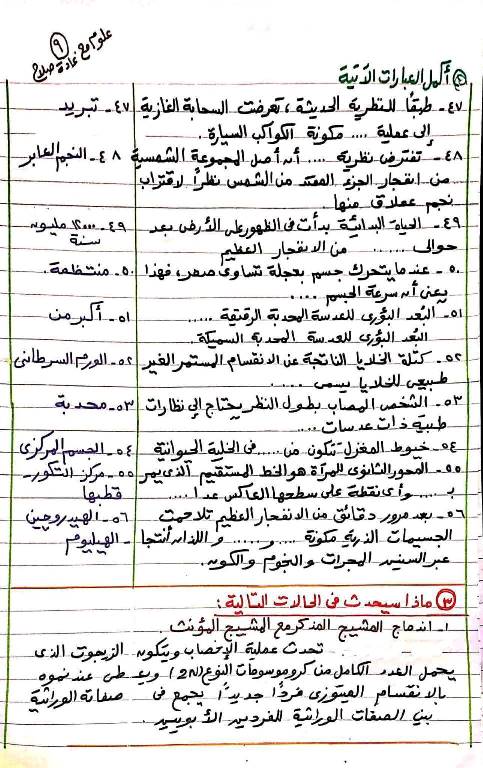 علوم مع غادة صلاح
٩
② أكمل العبارات الآتية
٤٧- طبقاً للنظرية الحديثة، تعرضت السحابة الغازية ٤٧- تبريد
إلى عملية .... مكونة الكواكب السيارة.
٤٨- تفترض نظرية .... أن أصل المجموعة الشمسية ٤٨- النجم العابر
من انفجار الجزء الممتد من الشمس نظراً لاقتراب
نجم عملاق منها.
٤٩- الحياة البدائية بدأت فى الظهور على الأرض بعد ٤٩- ١٢٠٠٠ مليون
حوالى ....... من الانفجار العظيم سنة
٥٠- عندما يتحرك جسم بعجلة تساوى صفر، فهذا ٥٠- منتظمة.
يعنى أن سرعة الجسم ....
٥١- البُعد البؤرى للعدسة المحدبة الرقيقة ..... ٥١- أكبر من
البُعد البؤرى للعدسة المحدبة السميكة.
٥٢- كتلة الخلايا الناتجة عن الانقسام المستمر الغير ٥٢- الورم السرطانى
طبيعى للخلايا يسمى .....
٥٣- الشخص المصاب بطول النظر يحتاج إلى نظارات ٥٣- محدبة
طبية ذات عدسات ....
٥٤- خيوط المغزل تتكون من .....فى الخلية الحيوانية ٥٤- الجسم المركزى
٥٥- المحور الثانوى للمرآة هو الخط المستقيم الذى يمر ٥٥- مركز التكور-
بـ ...... وأى نقطة على سطحها العاكس عدا .... قطبها
٥٦- بعد مرور دقائق من الانفجار العظيم تلاحمت ٥٦- الهيدروجين
الجسيمات الذرية مكونة .... و ...... واللذان أنتجا - الهيليوم
عبر السنين المجرات والنجوم والكون.
③ ماذا سيحدث فى الحالات التالية :
١- اندماج المشيج المذكر مع المشيج المؤنث
تحدث عملية الإخصاب ويتكون الزيجوت الذى
يحمل العدد الكامل من كروموسومات النوع (2N) ويعطى عند نموه
بالانقسام الميتوزى فرداً جديداً يجمع فى صفاته الوراثية
بين الصفات الوراثية للفردين الأبويين.